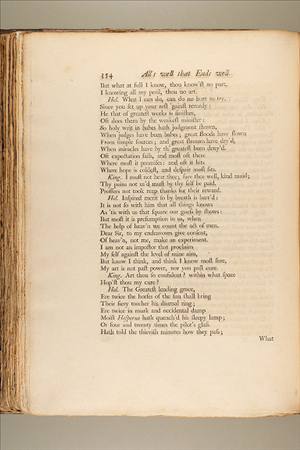 354 All's well that Ends well.
But what at full I know, thou know'st no part,
I knowing all my peril, thou no art.
Hel. What I can do, can do no hurt to try,
Since you set up your rest 'gainst remedy:
He that of greatest works is finisher,
Oft does them by the weakest minister:
So holy writ in babes hath judgment shown,
When judges have been babes; great floods have flown
From simple sources; and great seas have dry'd,
When miracles have by th' greatest been deny'd.
Oft expectation fails, and most oft there
Where most it promises: and oft it hits
Where hope is coldest, and despair most sits.
King. I must not hear thee; fare thee well, kind maid;
Thy pains not us'd must by thy self be paid.
Proffers not took reap thanks for their reward.
Hel. Inspired merit so by breath is barr'd:
It is not so with him that all things knows
As 'tis with us that square our guess by shows:
But most it is presumption in us, when
The help of heav'n we count the act of men.
Dear Sir, to my endeavours give consent,
Of heav'n, not me, make an experiment.
I am not an impostor that proclaim
My self against the level of mine aim,
But know I think, and think I know most sure,
My art is not past power, nor you past cure.
King. Art thou so confident? within what space
Hop'st thou my cure?
Hel. The Greatest lending grace,
Ere twice the horses of the sun shall bring
Their fiery torcher his diurnal ring;
Ere twice in murk and occidental damp
Moist Hesperus hath quench'd his sleepy lamp;
Or four and twenty times the pilot's glass
Hath told the thievish minutes how they pass;
What